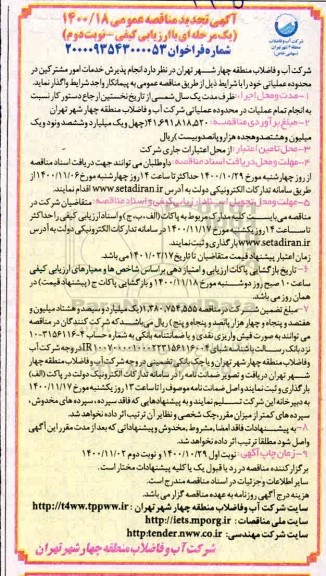 آگهی تجدید مناقصه عمومی ۱۴۰۰/۱۸
(یک مرحله ای با ارزیابی کیفی – نوبت دوم)
شماره فراخوان ۲۰۰۰۰۹۳۵۴۳۰۰۰۰۵۳
شرکت آب و فاضلاب
منطقه ۴ شهر تهران
(سهامی خاص)
شرکت آب و فاضلاب منطقه چهار شهر تهران در نظر دارد انجام پذیرش خدمات امور مشترکین در
محدوده عملیاتی خود را با شرایط ذیل از طریق مناقصه عمومی به پیمانکار واجد شرایط واگذار نماید.
۱- مدت و محل اجرا: ظرف مدت یک سال شمسی از تاریخ نخستین ارجاع دستور کار نسبت
به انجام تمام عملیات در محدوده عملیاتی شرکت آب و فاضلاب منطقه چهار شهر تهران
۲- مبلغ برآوردی مناقصه: ۴۱,۶۹۱,۸۱۸,۵۲۰ (چهل و یک میلیارد و ششصد و نود و یک
میلیون و هشتصد و هجده هزار و پانصد و بیست) ریال
۳- محل تامین اعتبار: از محل اعتبارات جاری شرکت
۴- مهلت و محل دریافت اسناد مناقصه: داوطلبان می توانند جهت دریافت اسناد مناقصه
از روز چهارشنبه مورخ ۱۴۰۰/۱۰/۲۹ حداکثر تا ساعت ۱۴ روز چهارشنبه مورخ ۱۴۰۰/۱۱/۰۶ از
طریق سامانه تدارکات الکترونیکی دولت به آدرس www.setadiran.ir اقدام نمایند.
۵- مهلت و محل تحویل اسناد ارزیابی کیفی و اسناد مناقصه: متقاضیان شرکت در
مناقصه می بایست کلیه مدارک مربوط به پاکات (الف، ب، ج) و اسناد ارزیابی کیفی را حداکثر
تا ساعت ۱۴ روز یکشنبه مورخ ۱۴۰۰/۱۱/۱۷ در سامانه تدارکات الکترونیکی دولت به آدرس
www.setadiran.ir بارگذاری و ثبت نمایند.
زمان اعتبار پیشنهاد قیمت متقاضیان تا تاریخ ۱۴۰۱/۰۲/۱۷ می باشد.
۶- تاریخ بازگشایی پاکات ارزیابی و امتیازدهی براساس شاخص ها و معیارهای ارزیابی کیفی
ساعت ۱۰ صبح روز دوشنبه مورخ ۱۴۰۰/۱۱/۱۸ و بازگشایی پاکات ج (پیشنهاد قیمت) در
همان روز می باشد.
۷- مبلغ تضمین شرکت در مناقصه ۱,۳۸۰,۷۵۴,۵۵۵ (یک میلیارد و سیصد و هشتاد میلیون و
هفتصد و پنجاه و چهار هزار پانصد و پنجاه و پنج) ریال می باشد که شرکت کنندگان در مناقصه
می توانند به صورت فیش واریز نقدی و یا ضمانتنامه بانکی به شماره حساب
نزد بانک رسالت با شناسه شبای در وجه شرکت آب
و فاضلاب منطقه چهار شهر تهران و یا چک بانکی تضمینی در وجه شرکت آب و فاضلاب منطقه چهار
شهر تهران دریافت و تصویر ضمانت نامه را در سامانه تدارکات الکترونیک دولت در پاکت (الف)
بارگذاری و ثبت نمایند و اصل ضمانت نامه موصوف را تا ساعت ۱۳ روز یکشنبه مورخ ۱۴۰۰/۱۱/۱۷
به دبیرخانه این شرکت تسلیم نمایند و به پیشنهادهایی که فاقد سپرده، سپرده های مخدوش،
سپرده های کمتر از میزان مقرر، چک شخصی و نظایر آن ترتیب اثر داده نخواهد شد.
۸- به پیشنهادات فاقد امضا، مشروط، مخدوش و پیشنهاداتی که بعد از مدت مقرر این آگهی
واصل شود مطلقا ترتیب اثر داده نخواهد شد.
۹- زمان چاپ آگهی: نوبت اول ۱۴۰۰/۱۰/۲۹ و نوبت دوم ۱۴۰۰/۱۱/۰۲
برگزارکننده مناقصه در رد یا قبول یک یا کلیه پیشنهادات مختار است.
سایر اطلاعات و جزئیات در اسناد مناقصه مندرج است.
هزینه درج آگهی روزنامه به عهده مناقصه گزار می باشد.
سایت شرکت آب و فاضلاب منطقه چهار شهر تهران: http://t4ww.tppww.ir
سایت ملی مناقصات: http://iets.mporg.ir
سایت شرکت مهندسی: http:tender.nww.co.ir
شرکت آب و فاضلاب منطقه چهار شهر تهران